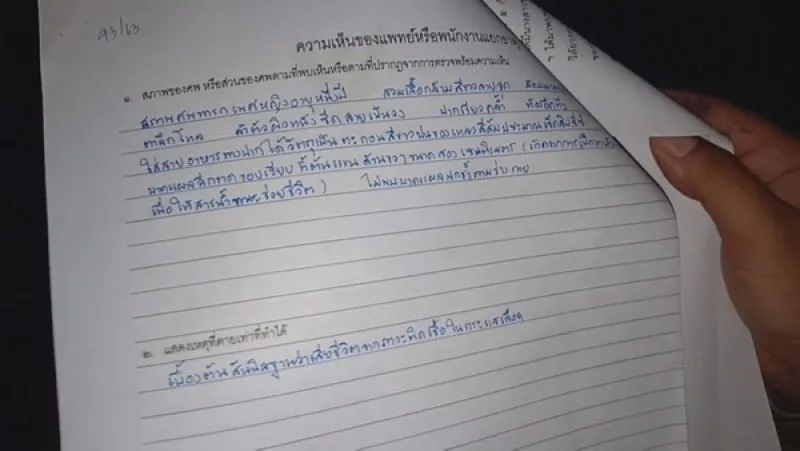 93/63
ความเห็นของแพทย์หรือพนักงานแยกธาตุ
๑. สภาพของศพ หรือส่วนของศพตามที่พบเห็นหรือตามที่ปรากฏจากการตรวจพร้อมความเห็น
สภาพศพทารก เพศหญิงอายุ หนึ่งปี สวมเสื้อกล้ามสีขาวลายจุด
ตาลึกโหล ลำตัวผิวหนังซีด ลายเป็นวง ปากเขียวคล้ำ
ใส่สายอาหารทางปาก ได้
บาดแผลฉีกขาดขอบเรียบ ที่ต้นแขนด้านขวา ขนาด สอง เซนติเมตร (เกิดจากการ
เพื่อให้สารน้ำขณะช่วยชีวิต) ไม่พบบาดแผลฟกช้ำตามร่างกาย
๒ แสดงเหตุที่ตายเท่าที่ทำได้
เบื้องต้น สันนิษฐานว่าเสียชีวิตจากภาวะติดเชื้อในกระแสเลือด